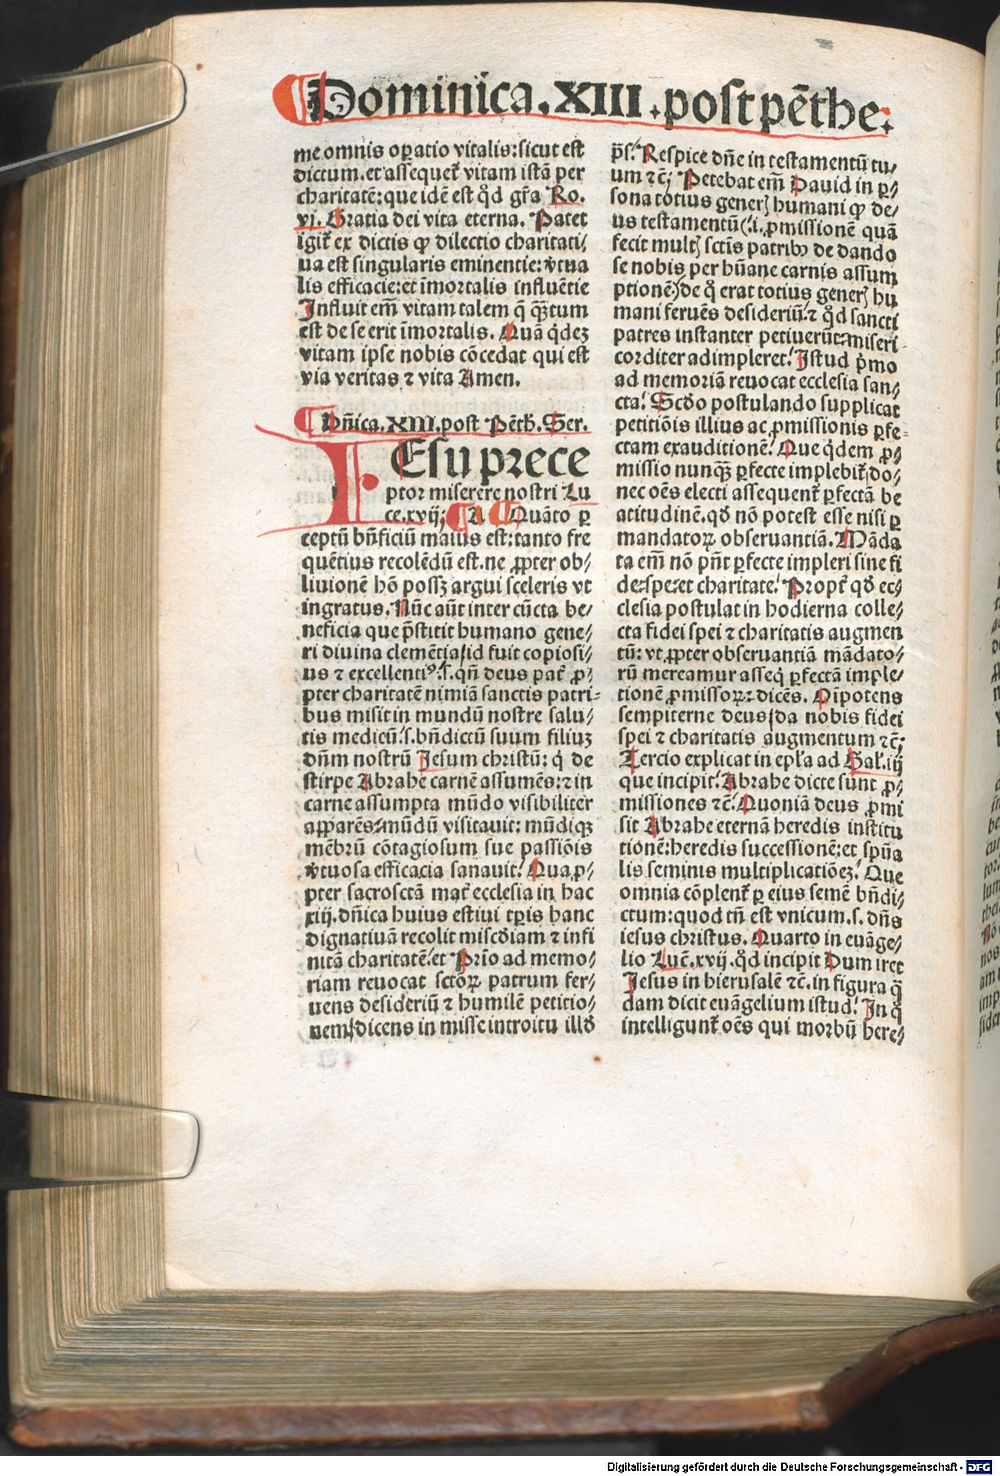 Dominica. XIII. post pēthe:
me omnis oꝑatio vitalis: sicut est
dictum. et asseqet᷑ vitam istā per
charitatē: que idē est qd̄ gr̄a Ro.
vj. Gratia dei vita eterna. Patet
igit᷑ ex dictis ꝙ dilectio charitati/
ua est singularis eminentie: v̄tua
lis efficacie: et īmortalis influētie
Influit em̄ vitam talem q̄ qꝫtum
est de se erit īmortalis. Quā qdeꝫ
vitam ipse nobis cōcedat qui est
via veritas ⁊ vita Amen.
Dn̄ica. XIII. post Pēth. Ser.
IEsu prece
ptor miserere nostri Lu
ce. xvij; A Quāto ꝑ
ceptū bn̄ficiū maius est: tanto fre
quētius recolēdū est. ne ꝓpter ob/
liuionē hō possꝫ argui sceleris vt
ingratus. Nūc aūt inter cūcta be/
neficia que p̄stitit humano gene/
ri diuina clemētia / id fuit copiosi/
us ⁊ excellentiꝰ. s. qn̄ deus pat᷑ ꝓ/
pter charitatē nimiā sanctis patri-
bus misit in mundū nostre salu/
tis medicū. s. bn̄dictū suum filiuꝫ
dn̄m nostrū Jesum christū: q̄ de
stirpe Abrahe carnē assumēs: ⁊ in
carne assumpta mūdo visibiliter
apparēs / mūdū visitauit: mūdiqꝫ
mēbrū cōtagiosum sue passiōis
v̄tuosa efficacia sanauit. Quaꝓ/
pter sacrosctā mat᷑ ecclesia in hac
xiij. dn̄ica huius estiui tꝑis hanc
dignatiuā recolit miscd̄iam ⁊ infi
nitā charitatē. et Prīo ad memo/
riam reuocat sctōꝝ patrum fer/
uens desideriū ⁊ humilē petitio/
nem / dicens in misse introitu illd̄
p̄s. Respice dn̄e in testamentū tu/
um ⁊c̄; Petebat em̄ Dauid in ꝑ/
sona totius generꝭ humani ꝙ de/
us testamentū (.i. ꝓmissionē quā
fecit multꝭ sctīs patribꝰ de dando
se nobis per hūane carnis assum
ptionē) de q̄ erat totius generꝭ hu
mani feruēs desideriū. ⁊ qd̄ sancti
patres instanter petiuerūt miseri-
corditer adimpleret. Istud p̄mo
ad memoriā reuocat ecclesia san/
cta. Scd̄o postulando supplicat
petitiōis illius ac ꝓmissionis ꝑfe-
ctam exauditionē. Que qdem ꝓ/
missio nunqꝫ ꝑfecte implebit᷑ / do/
nec oēs electi assequent᷑ ꝑfectā be
atitudinē. qd̄ nō potest esse nisi ꝑ
mandatoꝝ obseruantiā. Māda
ta em̄ nō pn̄t ꝑfecte impleri sine fi
de: spe: et charitate. Propt᷑ qd̄ ec/
clesia postulat in hodierna colle/
cta fidei spei ⁊ charitatis augmen
tū: vt ꝓpter obseruantiā mādato/
rū mereamur asseq̄ ꝑfectā imple/
tionē ꝓmissoꝝ: dicēs. Oīpotens
sempiterne deus / da nobis fidei
spei ⁊ charitatis augmentum ⁊c̄;
Tercio explicat in epl̄a ad Gal. iij
que incipit. Abrahe dicte sunt ꝓ/
missiones ⁊c̄. Quoniā deus ꝓmi
sit Abrahe eternā heredis institu
tionē: heredis successionē: et sp̄ua
lis seminis multiplicatiōeꝫ. Que
omnia cōplent᷑ ꝑ eius semē bn̄di/
ctum: quod tn̄ est vnicum. s. dn̄s
iesus christus. Quarto in euāge/
lio Luē. xvij. qd̄ incipit Dum iret
Jesus in hierusalē ⁊c̄. in figura q̄
dam dicit euāgelium istud. In q̄
intelligunt᷑ oēs qui morbū here/
Digitalisierung gefördert durch die Deutsche Forschungsgemeinschaft - DFG